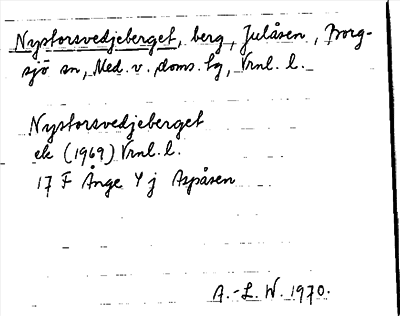 Nystorsvedjeberget, berg, Julåsen, Borg-
sjö sn, Med. v. doms. tg, Vrnl. l.
Nystorsvedjeberget
ek (1969) Vrnl. l.
17 F Ånge Y j Aspåsen
A.-L. W. 1970.